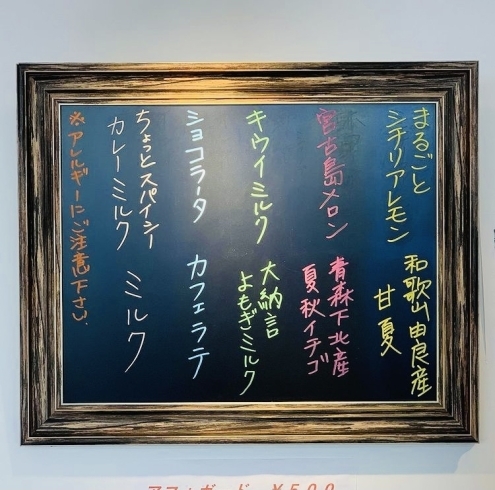 まるごと
シチリアレモン
和歌山由良産
甘夏
宮古島メロン
青森下北産
夏秋イチゴ
キウイミルク
大納言
よもぎミルク
ショコラータ
カフェラテ
ちょっとスパイシー
カレーミルク
ミルク
※アレルギーにご注意下さい.